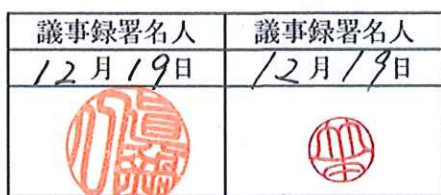 議事録署名人 議事録署名人
12月19日 12月19日